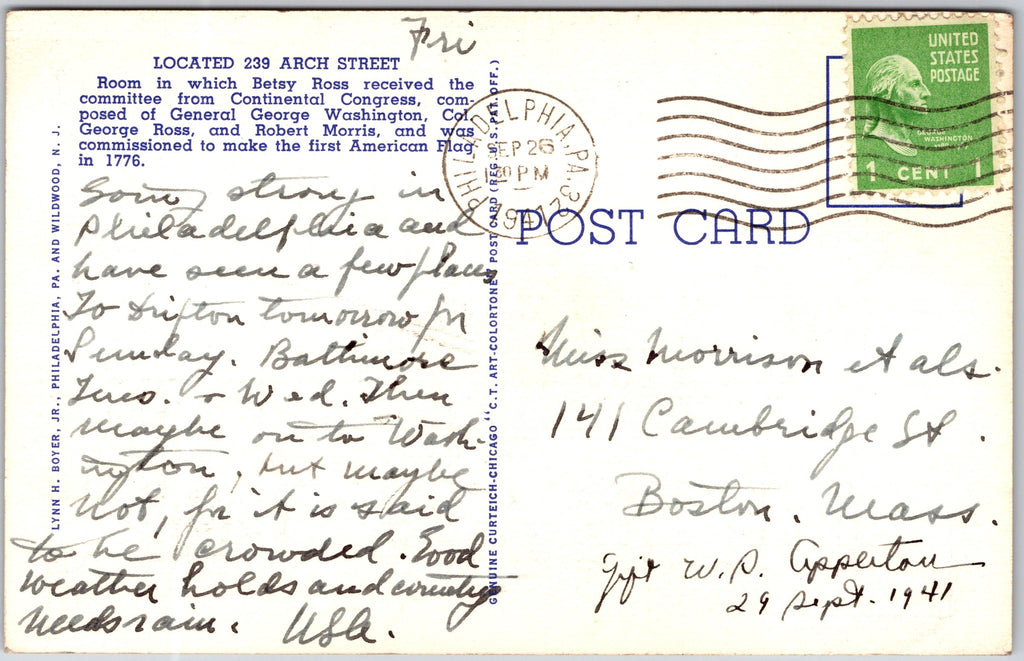 Fri
LOCATED 239 ARCH STREET
Room in which Betsy Ross received the
committee from Continental Congress, com-
posed of General George Washington, Col.
George Ross, and Robert Morris, and was
commissioned to make the first American Flag
in 1776.
Going strong in
Philadelphia and
have seen a few places
To Drifton tomorrow for
Sunday. Baltimore
Tues. + Wed. Then
maybe on to Wash-
ington, but maybe
not, for it is said
to be crowded. Good
weather holds and country
needs rain. WSA.
LYNN H. BOYER, JR., PHILADELPHIA, PA. AND WILDWOOD, N. J.
GENUINE CURTEICH-CHICAGO "C.T. ART-COLORTONE" POST CARD (REG. U.S. PAT. OFF.)
PHILADELPHIA, PA.
SEP 26
PM
1941
UNITED
STATES
POSTAGE
GEORGE
WASHINGTON
1 CENT 1
POST CARD
Miss Morrison et als.
141 Cambridge St.
Boston, Mass.
Gift W.S. Appleton
29 Sept. 1941